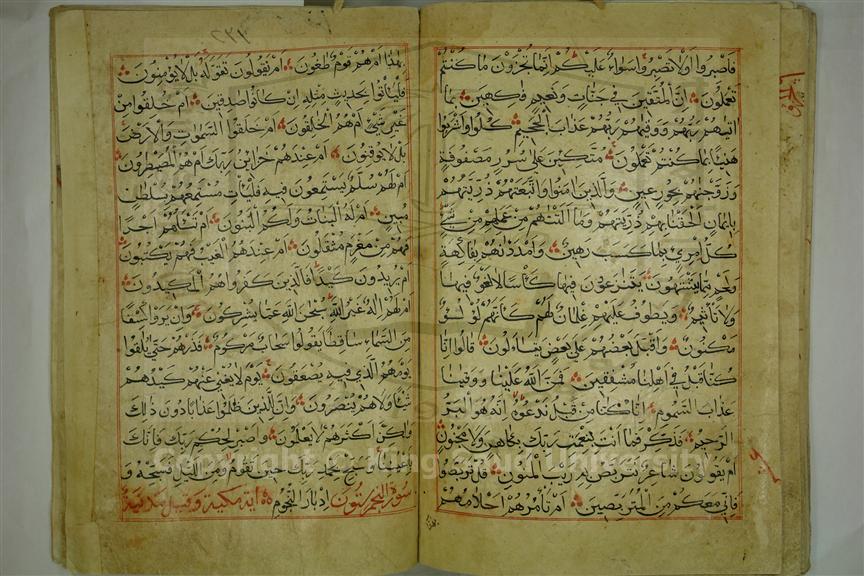 فاصبروا أولا تصبروا سواء عليكم إنما تجزون ما كنتم
تعملون إن المتقين في جنات ونعيم فاكهين بما
اتيهم ربهم ووقيهم ربهم عذاب الجحيم كلوا واشربوا
هنيئا بما كنتم تعملون متكئين على سرر مصفوفة
وزوجنهم بحور عين والذين امنوا واتبعتهم ذريتهم
بايمان الحقنا بهم ذريتهم وما التنهم من عملهم من شئ
كل امرئ بما كسب رهين وامددنهم بفاكهة
ولحم مما يشتهون يتنازعون فيها كاسا لا لغو فيها
ولا تأثيم ويطوف عليهم غلمان لهم كأنهم لؤلؤ
مكنون واقبل بعضهم على بعض يتساءلون قالوا انا
كنا قبل في اهلنا مشفقين فمن الله علينا ووقينا
عذاب السموم انا كنا من قبل ندعوه انه هو البر
الرحيم فذكر فما انت بنعمت ربك بكاهن ولا مجنون
ام يقولون شاعر نتربص به ريب المنون قل تربصوا
فاني معكم من المتربصين ام تأمرهم احلامهم
بهذا
٢٣١
بهذا ام هم قوم طاغون ام يقولون تقوله بل لا يؤمنون
فليأتوا بحديث مثله ان كانوا صدقين ام خلقوا من
غير شئ ام هم الخالقون ام خلقوا السموات والارض
بل لا يوقنون ام عندهم خزائن ربك ام هم المصيطرون
ام لهم سلم يستمعون فيه فليأت مستمعهم بسلطان
مبين ام له البنات ولكم البنون ام تسألهم اجرا
فهم من مغرم مثقلون ام عندهم الغيب فهم يكتبون
ام يريدون كيدا فالذين كفروا هم المكيدون
ام لهم اله غير الله سبحن الله عما يشركون وان يروا كسفا
من السماء ساقطا يقولوا سحاب مركوم فذرهم حتى يلقوا
يومهم الذي فيه يصعقون يوم لا يغني عنهم كيدهم
شيئا ولا هم ينصرون وان للذين ظلموا عذابا دون ذلك
ولكن اكثرهم لا يعلمون واصبر لحكم ربك فانك
باعيننا وسبح بحمد ربك حين تقوم ومن الليل فسبحه و
ادبار النجوم سورة النجم ستون اية مكية وقيل مدنية
Copyright © King Saud University